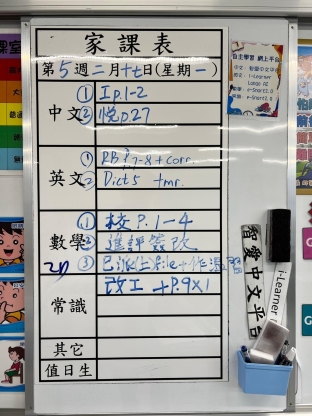 家課表
第5週二月十七日(星期一)
中文
① 工p.1-2
② 悅p.27
英文
① RB P.7-8 + corr.
② Dict 5 + mr.
數學
① 校 P.1-4
② 進評簽改
③ 已派(上)file+作
常識
改工 + P.9x1
其它
值日生
自主學習 網上平台
智愛中文平台
i-Learner